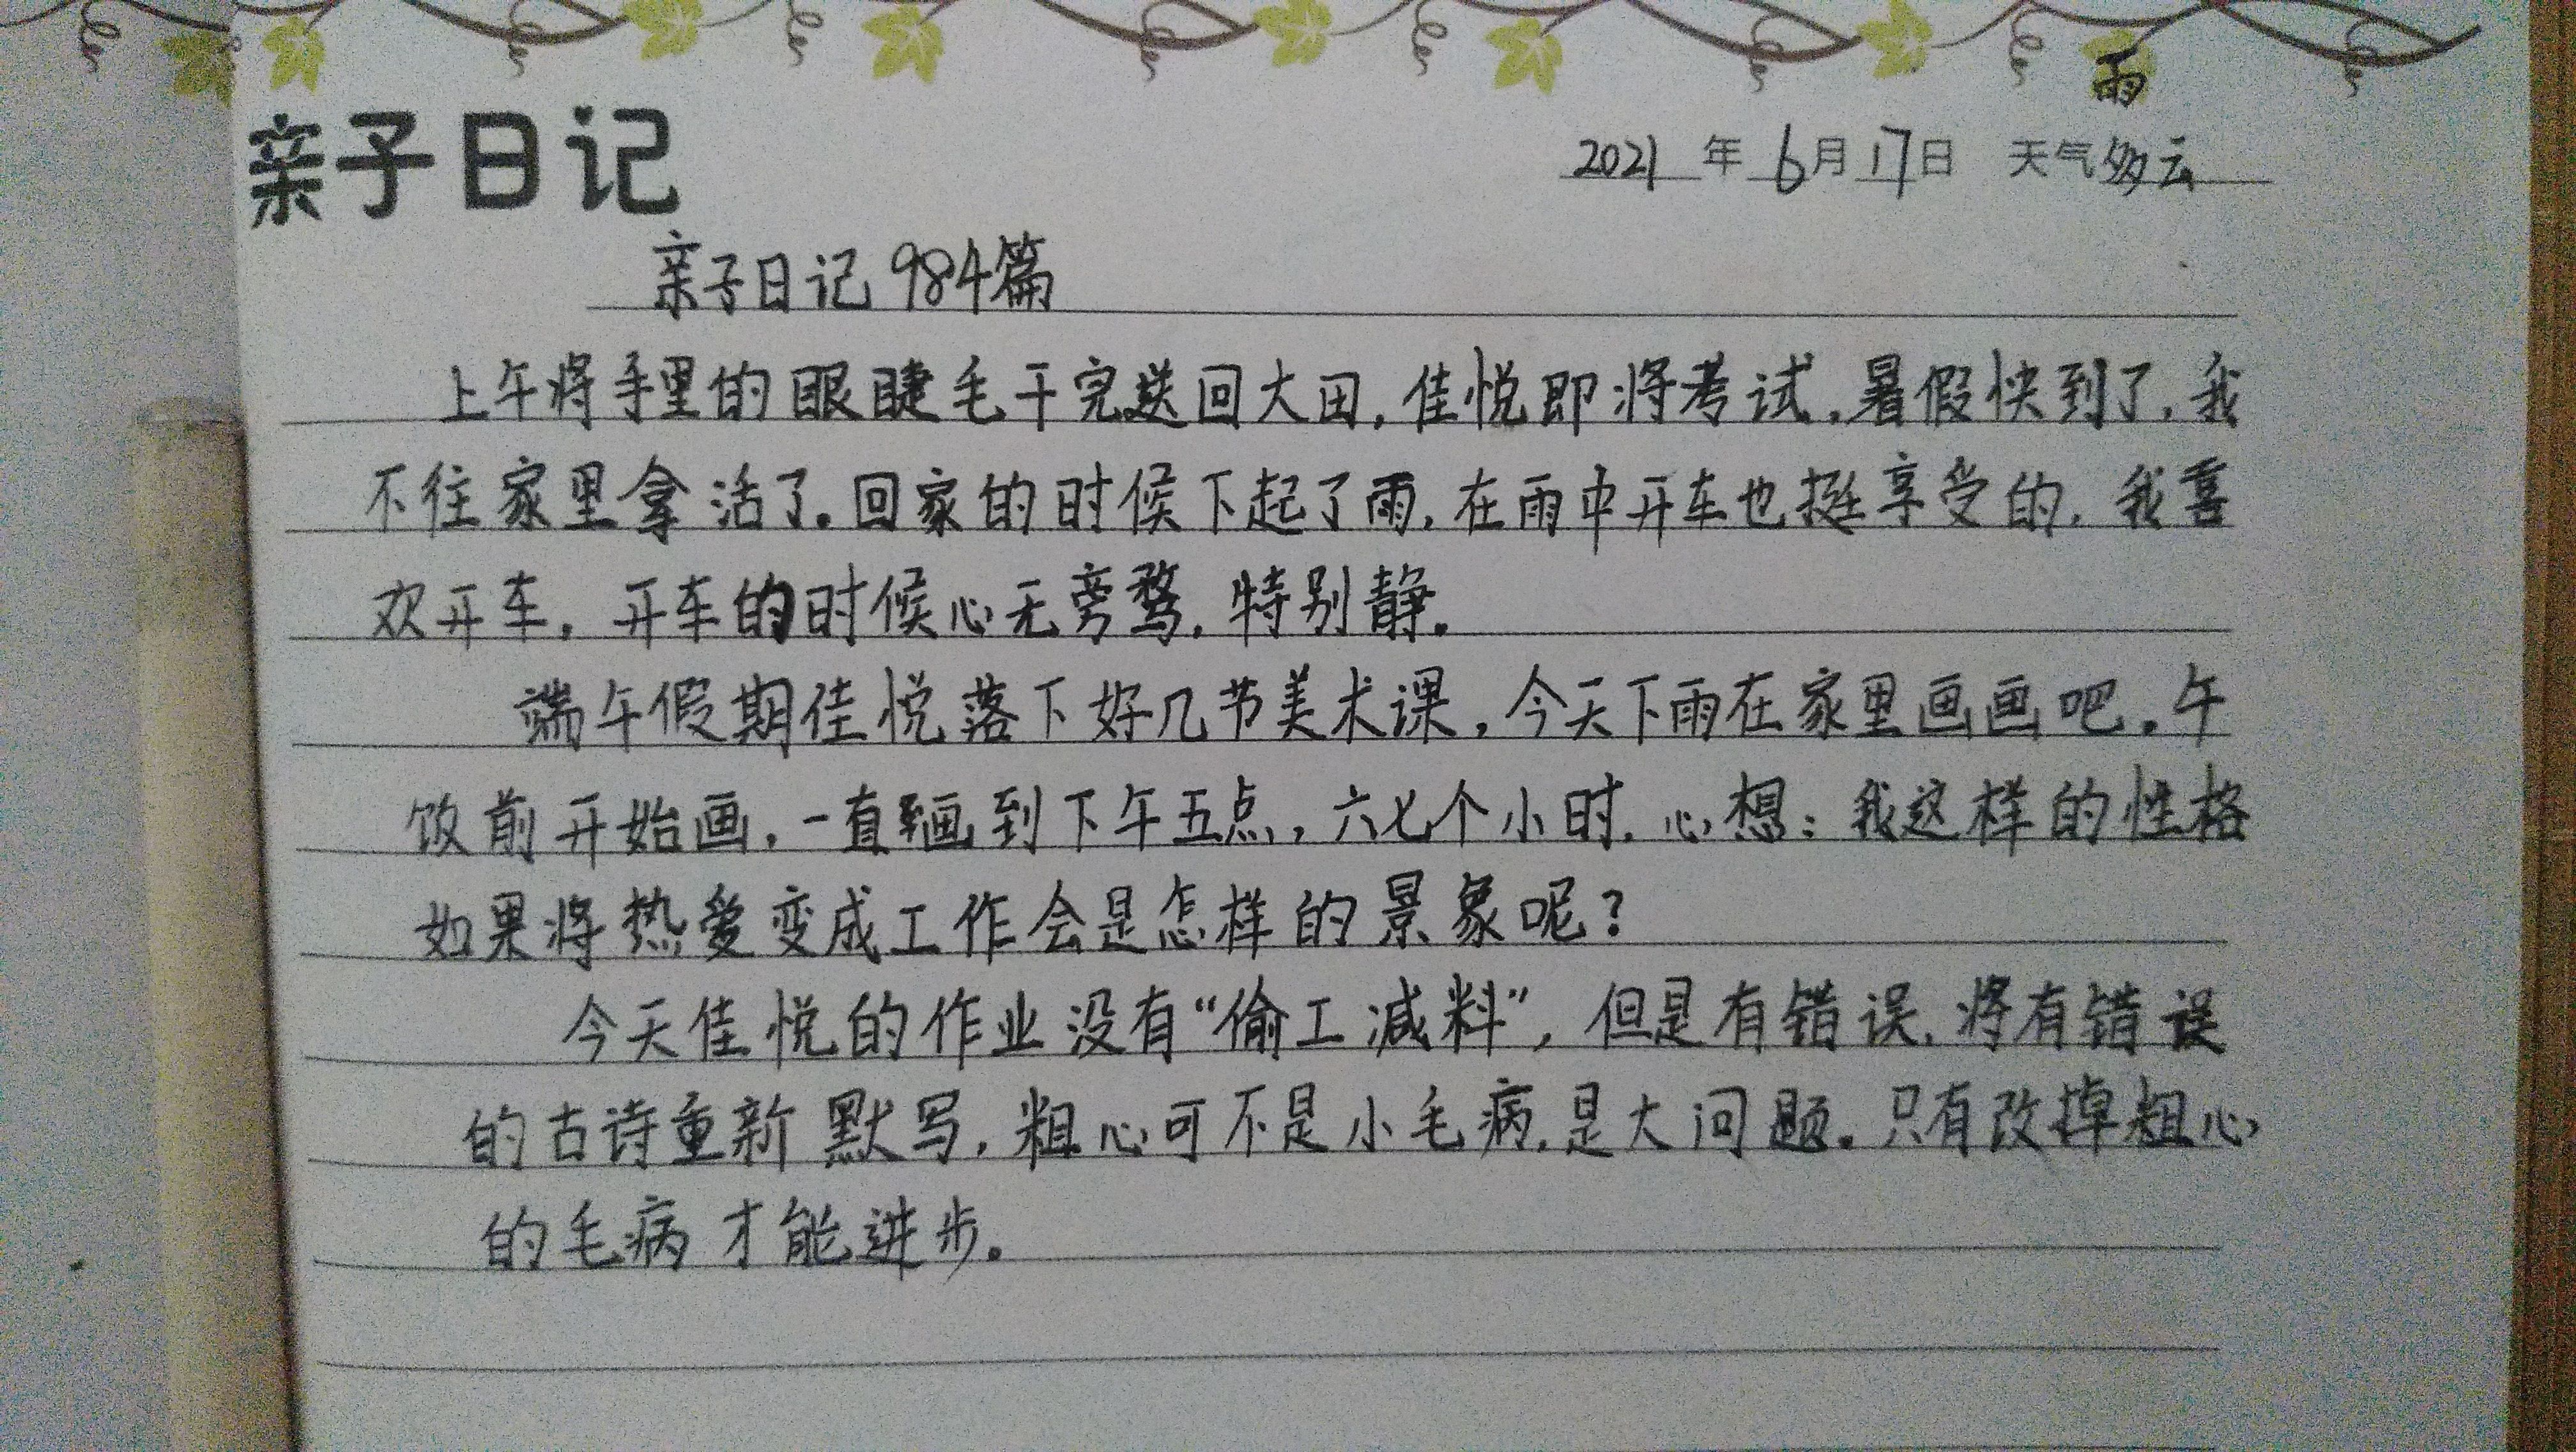 雨
亲子日记
2021年6月17日 天气多云
亲子日记984篇
上午将手里的眼睫毛干完送回大田,佳悦即将考试,暑假快到了,我
不往家里拿活了。回家的时候下起了雨,在雨中开车也挺享受的,我喜
欢开车。开车的时候心无旁骛,特别静。
端午假期佳悦落下好几节美术课,今天下雨在家里画画吧。午
饭前开始画,一直画到下午五点,六七个小时,心想:我这样的性格
如果将热爱变成工作会是怎样的景象呢?
今天佳悦的作业没有“偷工减料”,但是有错误,将有错误
的古诗重新默写,粗心可不是小毛病,是大问题。只有改掉粗心
的毛病才能进步。